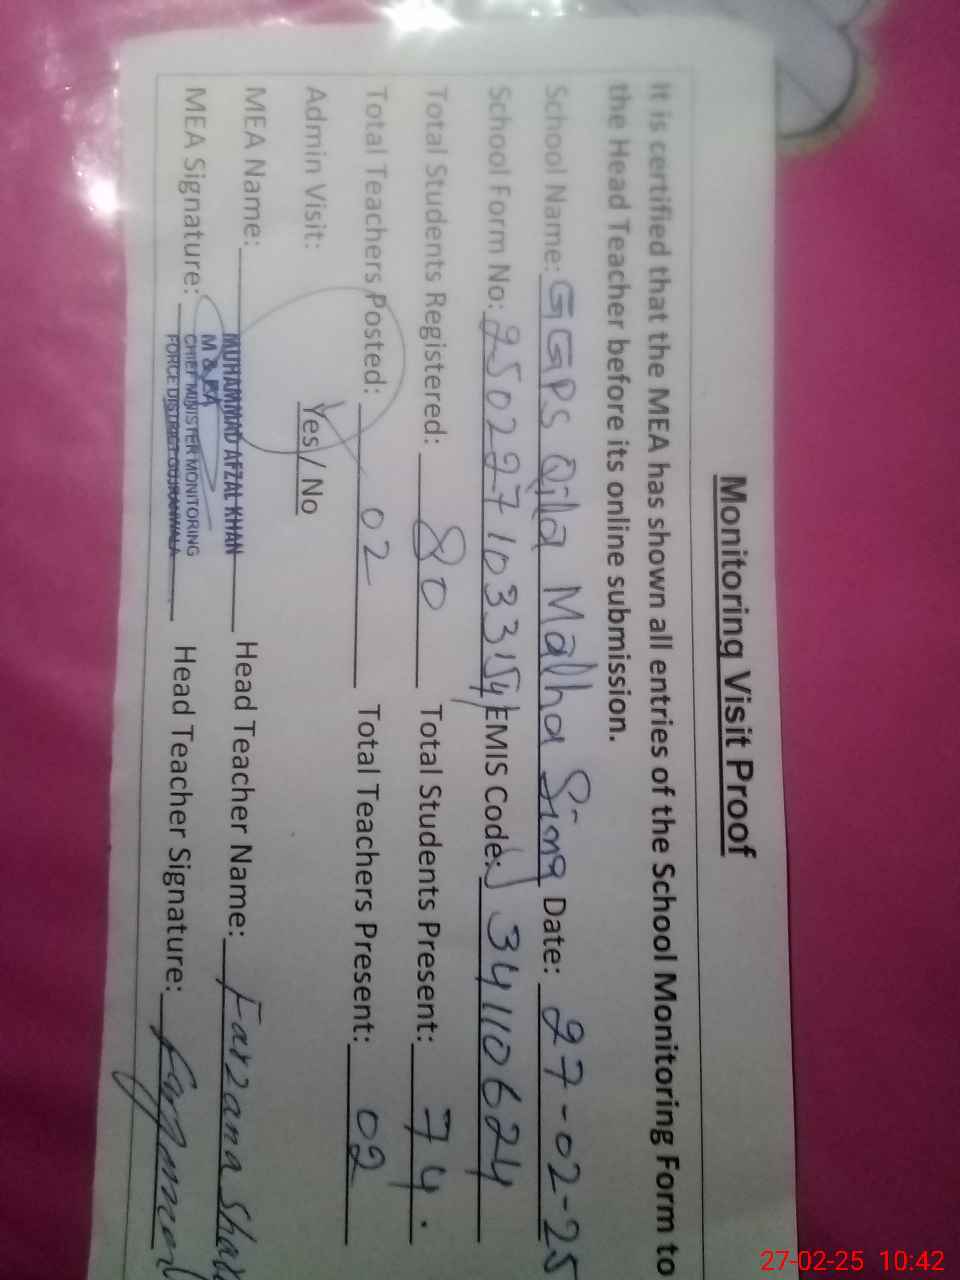 Monitoring Visit Proof
It is certified that the MEA has shown all entries of the School Monitoring Form to
the Head Teacher before its online submission.
School Name: GGPS Qila Malha Sing Date: 27-02-25
School Form No: 2502271033154 EMIS Code: 34110624
Total Students Registered: 80 Total Students Present: 74.
Total Teachers Posted: 02 Total Teachers Present: 02
Admin Visit: Yes / No
MEA Name: MUHAMMAD AFZAL KHAN Head Teacher Name: Farzana
M & EA
MEA Signature: CHIEF MINISTER MONITORING Head Teacher Signature:
FORCE DISTRICT GUJRANWALA
27-02-25 10:42